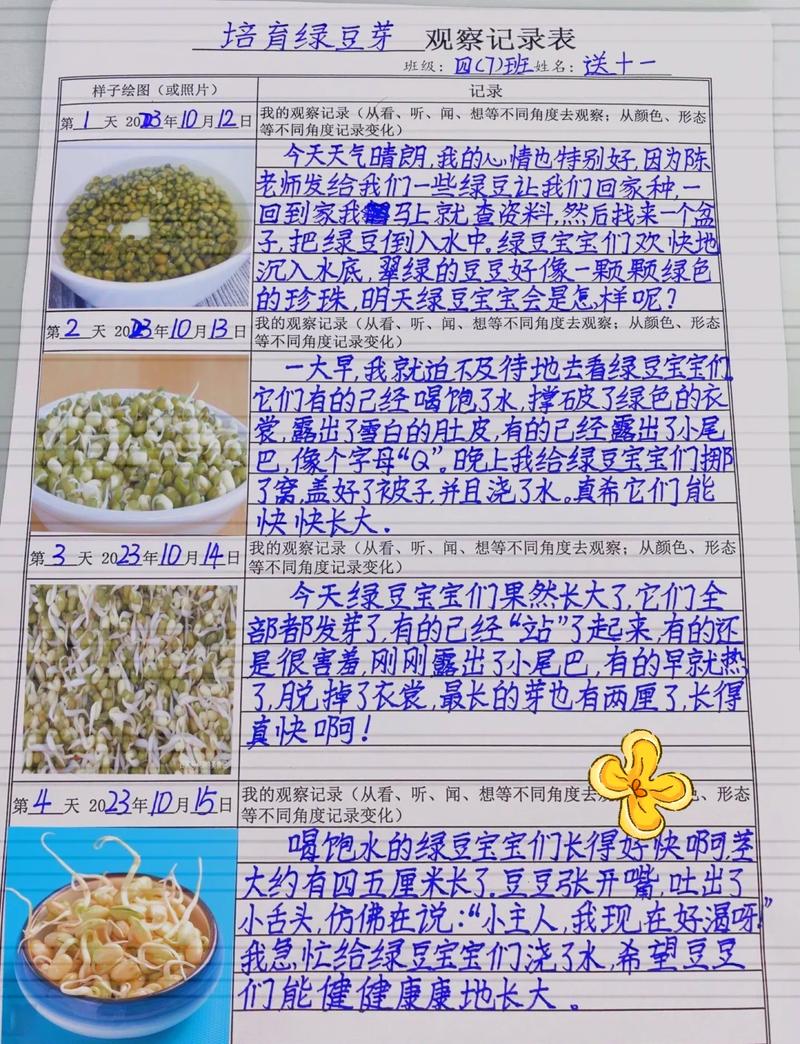 培育绿豆芽 观察记录表
班级：四(7)班 姓名：送十一
样子绘图（或照片） 记录
第1天 2023年10月12日
我的观察记录（从看、听、闻、想等不同角度去观察；从颜色、形态
等不同角度记录变化）
今天天气晴朗，我的心情也特别好，因为陈
老师发给我们一些绿豆让我们回家种，一
回到家我马上就查资料，然后找来一个盆
子，把绿豆倒入水中。绿豆宝宝们欢快地
沉入水底，翠绿的豆豆好像一颗颗绿色
的珍珠，明天绿豆宝宝会是怎样呢？
第2天 2023年10月13日
我的观察记录（从看、听、闻、想等不同角度去观察；从颜色、形态
等不同角度记录变化）
一大早，我就迫不及待地去看绿豆宝宝们，
它们有的已经喝饱了水，撑破了绿色的衣
裳，露出了雪白的肚皮，有的已经露出了小尾
巴，像个字母“Q”。晚上我给绿豆宝宝们挪
了窝，盖好了被子，并且浇了水。真希它们能
快快长大．
第3天 2023年10月14日
我的观察记录（从看、听、闻、想等不同角度去观察；从颜色、形态
等不同角度记录变化）
今天绿豆宝宝们果然长大了，它们全
部都发芽了，有的已经“站”了起来，有的还
是很害羞，刚刚露出了小尾巴，有的早就热
了，脱掉了衣裳，最长的芽也有两厘了，长得
真快啊！
第4天 2023年10月15日
我的观察记录（从看、听、闻、想等不同角度去观察；从颜色、形态
等不同角度记录变化）
喝饱水的绿豆宝宝们长得好快啊，茎
大约有四五厘米长了。豆豆张开嘴，吐出了
小舌头，仿佛在说：“小主人，我现在好渴呀！”
我急忙给绿豆宝宝们浇了水，希望豆豆
们能健健康康地长大。